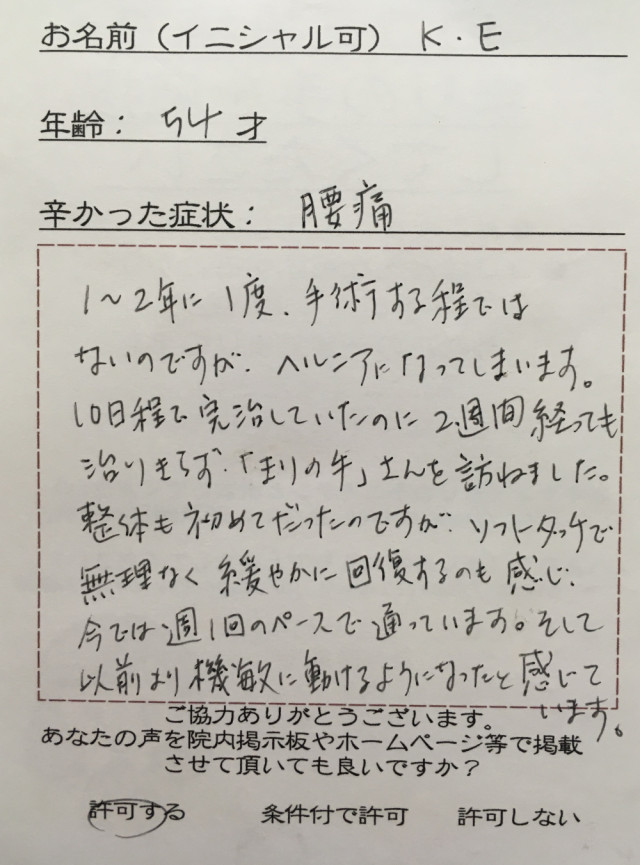 お名前（イニシャル可） K・E
年齢： 54才
辛かった症状： 腰痛
1〜2年に1度、手術する程では
ないのですが、ヘルニアになってしまいます。
10日程で完治していたのに2週間経っても
治りきらず、「まりの手」さんを訪ねました。
整体も初めてだったのですが、ソフトタッチで
無理なく緩やかに回復するのも感じ、
今では週1回のペースで通っています。そして
以前より機敏に動けるようになったと感じて
います。
ご協力ありがとうございます。
あなたの声を院内掲示板やホームページ等で掲載
させて頂いても良いですか？
許可する 条件付で許可 許可しない